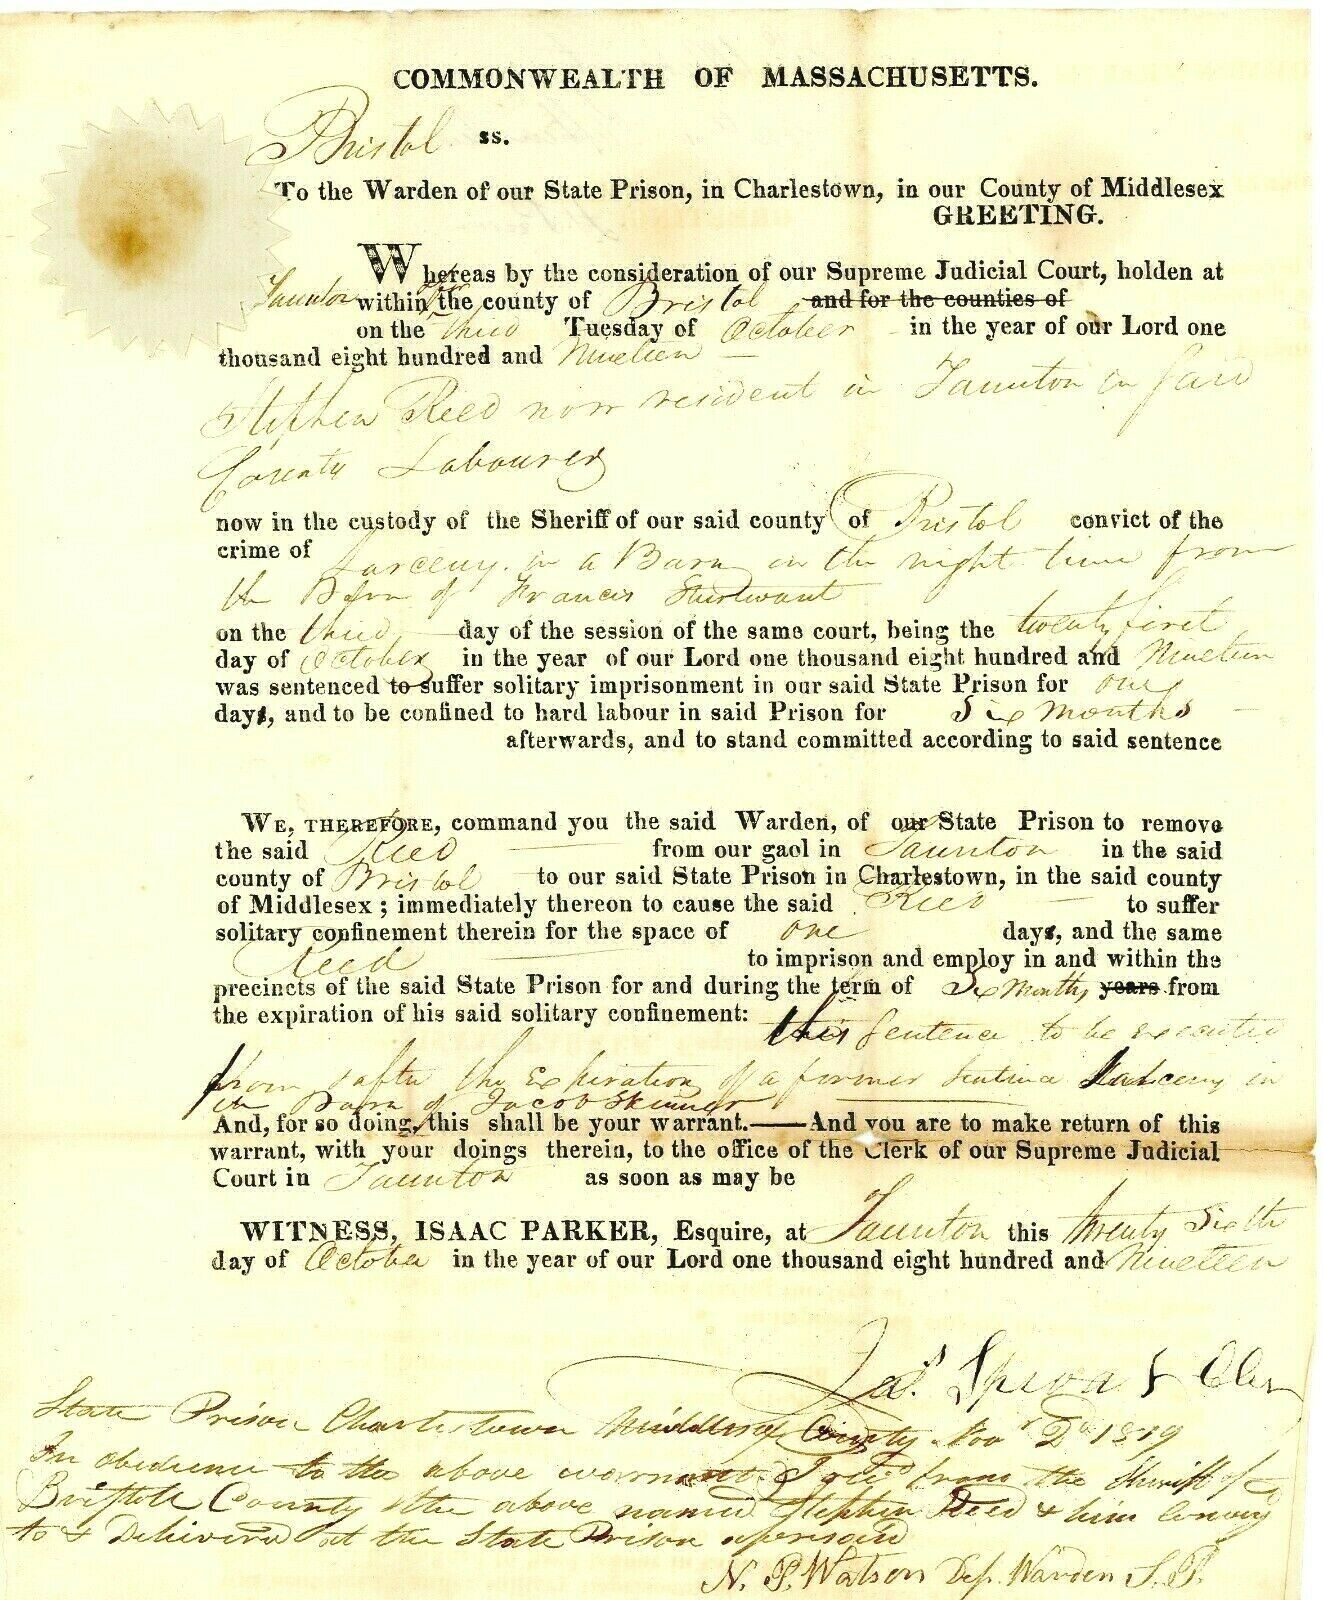 COMMONWEALTH OF MASSACHUSETTS.
Bristol ss.
To the Warden of our State Prison, in Charlestown, in our County of Middlesex
GREETING.
Whereas by the consideration of our Supreme Judicial Court, holden at
Taunton within the county of Bristol and for the counties of
on the third Tuesday of October in the year of our Lord one
thousand eight hundred and Nineteen
Stephen Reed now resident in Taunton in said
County Labourer
now in the custody of the Sheriff of our said county of Bristol convict of the
crime of Larceny in a Barn in the night time from
the Barn of Francis Sturtevant
on the third day of the session of the same court, being the twenty first
day of October in the year of our Lord one thousand eight hundred and Nineteen
was sentenced to suffer solitary imprisonment in our said State Prison for one
days, and to be confined to hard labour in said Prison for Six months
afterwards, and to stand committed according to said sentence
WE, THEREFORE, command you the said Warden, of our State Prison to remove
the said Reed from our gaol in Taunton in the said
county of Bristol to our said State Prison in Charlestown, in the said county
of Middlesex ; immediately thereon to cause the said Reed to suffer
solitary confinement therein for the space of one days, and the same
Reed to imprison and employ in and within the
precincts of the said State Prison for and during the term of Six Months years from
the expiration of his said solitary confinement: this Sentence to be executed
from & after the Expiration of a former Sentence Larceny in
the Barn of Jacob Skinner
And, for so doing, this shall be your warrant.——And you are to make return of this
warrant, with your doings therein, to the office of the Clerk of our Supreme Judicial
Court in Taunton as soon as may be
WITNESS, ISAAC PARKER, Esquire, at Taunton this twenty Sixth
day of October in the year of our Lord one thousand eight hundred and Nineteen
Jas Clerk
State Prison Charlestown Middlesex County Nov 2d 1819
In obedience to the above warrant I recd from the Sheriff of
Bristol County the above named Stephen Reed & him convey
to & Delivered at the State Prison
N. P. Watson Dep. Warden S. P.